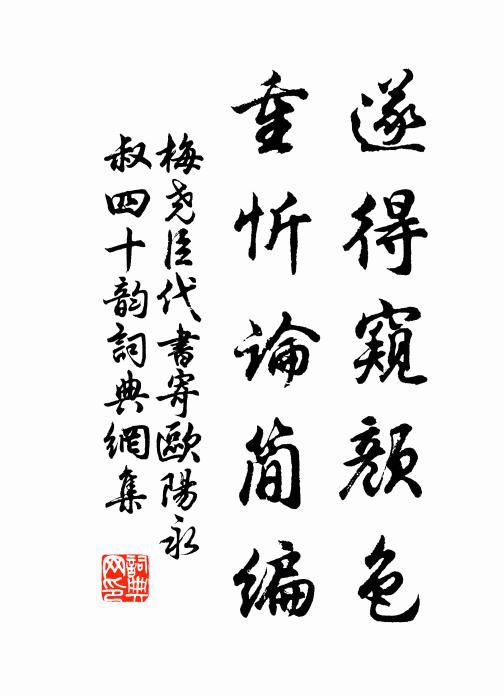 遂得窺顏色
重忻論簡編
梅堯臣代書寄歐陽永
叔四十韵詞典網集
詞典网印